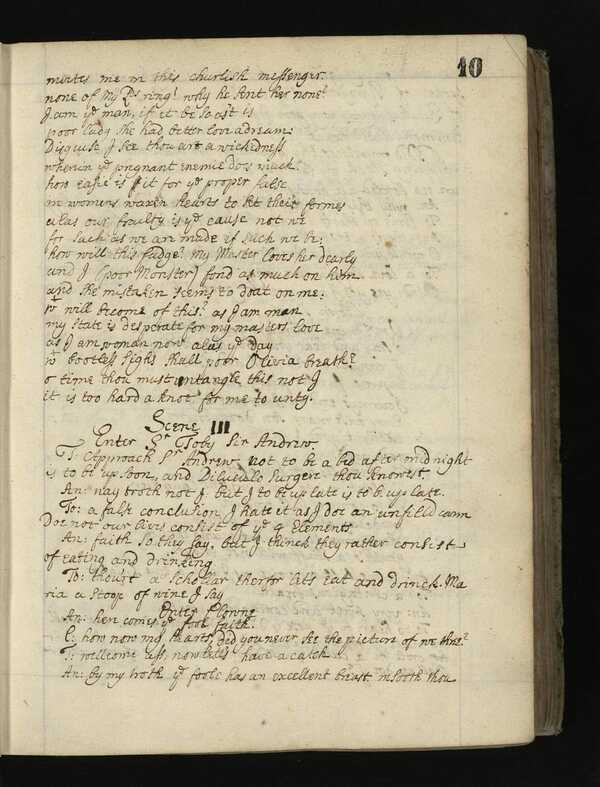 10
invites me in this churlish messenger.
none of my Lds ring! why he sent her none?
I am ye man, if it be so ast is
poor lady she had better love a dream.
Disguise I see thou art a wickedness
wherin ye pregnant enemie does much.
how easie is it for ye proper false
in womens waxen hearts to set their formes
alas our frailty is ye cause not we
for such as we are made if such we be:
how will this fadge? my Master loves her dearly
and I (poor Monster) fond as much on him
and she mistaken seems to doat on me:
wt will become of this? as I am man
my state is desperate for my masters love
as I am woman now alas ye day
wt bootless sighs shall poor Olivia breath?
o time thou must untangle this not I
it is too hard a knot for me to unty.
Scene III
Enter Sr Toby Sir Andrew
T: Approach Sr Andrew not to be a bed after midnight
is to be up soon, and Diluculo Surgere thou knowest.
An: nay troth not I, but I to be up late is to be up late.
To: a false conclusion, I hate it as I doe an unfild cann
Doe not our lives consist of ye 4 Elements
An: faith so they say, but I thinck they rather consist
of eating and drinking
To: thou'rt a schollar therfor let's eat and drinck. Ma
ria a stoop of wine I say
Enter Clowne
An: here comes ye fool faith.
C: how now my hearts, did you never see the picture of we three?
T: wellcome ass, now let's have a catch
An: by my troth ye foole has an excellent breast. insooth thou